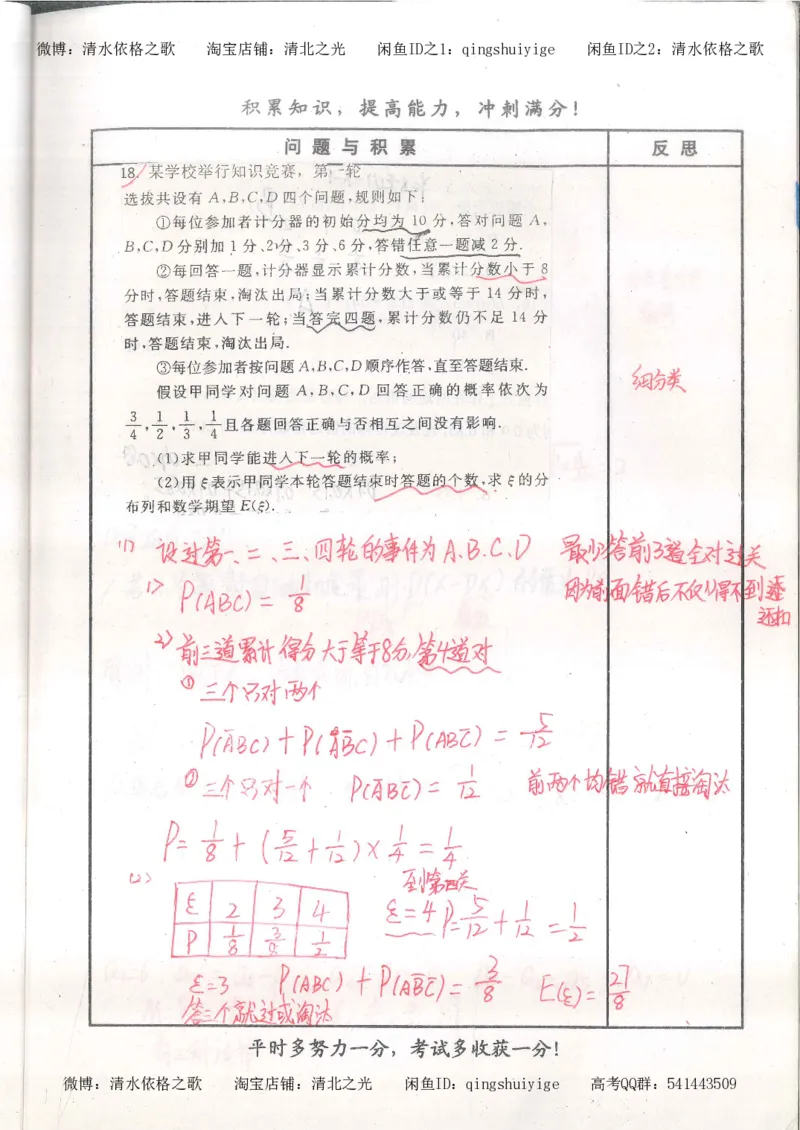 微博：清水依格之歌 淘宝店铺：清北之光 闲鱼ID之1：qingshuiyige 闲鱼ID之2：清水依格之歌
积累知识，提高能力，冲刺满分！
问题与积累 反思
18. 某学校举行知识竞赛，第一轮
选拔共设有 A,B,C,D 四个问题，规则如下：
①每位参加者计分器的初始分均为 10 分，答对问题 A，
B,C,D 分别加 1 分、2 分、3 分、6 分，答错任意一题减 2 分.
②每回答一题，计分器显示累计分数，当累计分数小于 8
分时，答题结束，淘汰出局；当累计分数大于或等于 14 分时，
答题结束，进入下一轮；当答完四题，累计分数仍不足 14 分
时，答题结束，淘汰出局.
③每位参加者按问题 A,B,C,D 顺序作答，直至答题结束.
假设甲同学对问题 A,B,C,D 回答正确的概率依次为
3/4, 1/2, 1/3, 1/4 且各题回答正确与否相互之间没有影响.
(1)求甲同学能进入下一轮的概率；
(2)用 ξ 表示甲同学本轮答题结束时答题的个数，求 ξ 的分
布列和数学期望 E(ξ).
细分类
(1) 设过第一、二、三、四轮的事件为 A.B.C.D 最少答前3道全对过关
1> P(ABC) = 1/8 因为前面错后不仅得不到还扣
2> 前三道累计得分大于等于8分,第4道对
① 三个只对两个
P(ĀBC) + P(AB̄C) + P(ABC̄) = 5/12
② 三个只对一个 P(ĀBC̄) = 1/12 前两个均错就直接淘汰
P = 1/8 + (5/12 + 1/12) × 1/4 = 1/4
(2) 到第四关
ξ 2 3 4 ξ=4 P= 5/12 + 1/12 = 1/2
P 1/8 3/8 1/2
ξ=3 P(ABC) + P(AB̄C̄) = 3/8 E(ξ) = 27/8
答三个就过或淘汰
平时多努力一分，考试多收获一分！
微博：清水依格之歌 淘宝店铺：清北之光 闲鱼ID：qingshuiyige 高考QQ群：541443509